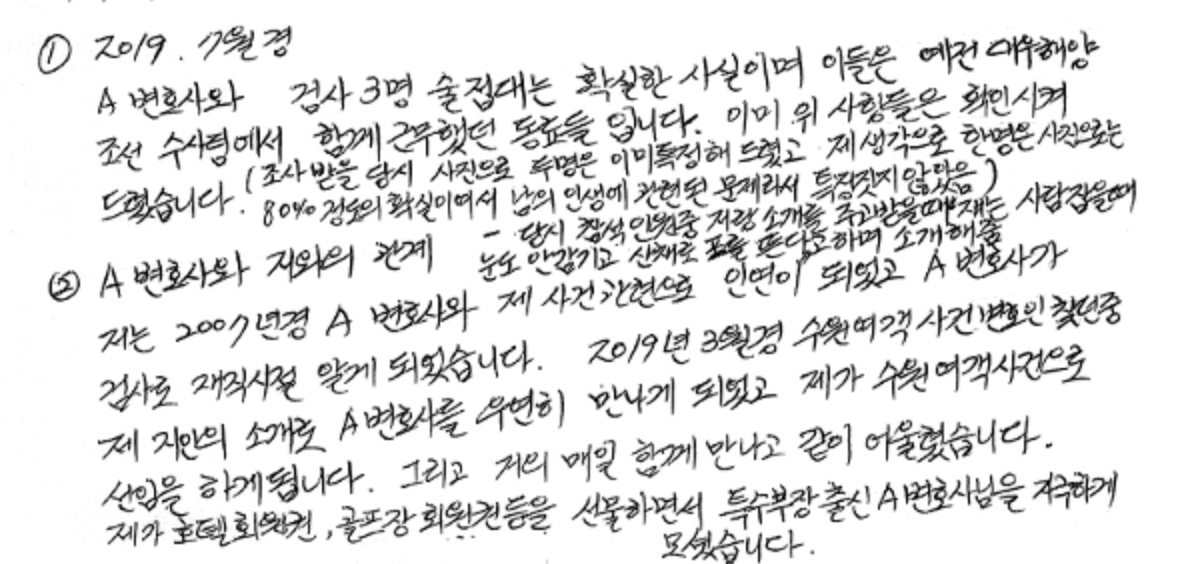 ① 2019. 7월경
A 변호사와 검사 3명 술접대는 확실한 사실이며 이들은 예전 대우해양
조선 수사팀에서 함께 근무했던 동료들 입니다. 이미 위 사항들은 확인시켜
드렸습니다. (조사 받을 당시 사진으로 두명은 이미특정해 드렸고 제생각으로 한명은 사진으로는
80%정도의 확실이여서 남의 인생에 관련된 문제라서 특정짓지 않았음)
- 당시 참석 인원중 저랑 소개를 주고받을때 "재는 사람 잡을때
눈도 안감기고 산채로 포를 뜬다"고하며 소개해줌
② A 변호사와 저와의 관계
저는 2007년경 A 변호사와 제 사건 관련으로 인연이 되었고 A 변호사가
검사로 재직시절 알게 되었습니다. 2019년 3월경 수원여객 사건 변호인 찾던중
제 지인의 소개로 A변호사를 우연히 만나게 되었고 제가 수원여객사건으로
선임을 하게됩니다. 그리고 거의 매일 함께 만나고 같이 어울렸습니다.
제가 호텔회원권, 골프장 회원권등을 선물하면서 특수부장 출신 A변호사님을 지극하게
모셨습니다.